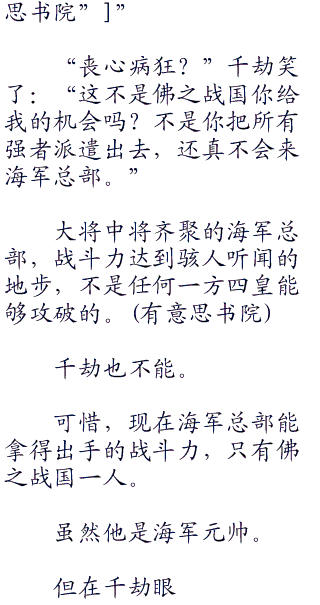 思书院”]”
“丧心病狂？”千劫笑
了：“这不是佛之战国你给
我的机会吗？不是你把所有
强者派遣出去，还真不会来
海军总部。”
大将中将齐聚的海军总
部，战斗力达到骇人听闻的
地步，不是任何一方四皇能
够攻破的。(有意思书院)
千劫也不能。
可惜，现在海军总部能
拿得出手的战斗力，只有佛
之战国一人。
虽然他是海军元帅。
但在千劫眼